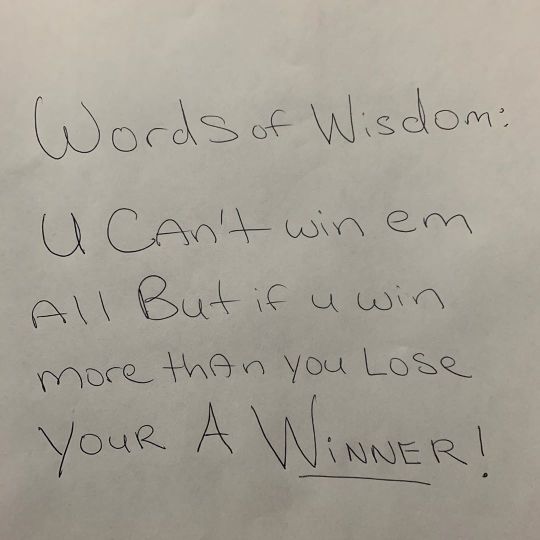 Words of Wisdom:
U CAn't win em
All But if u win
more thAn you Lose
YOUR A WiNNER!